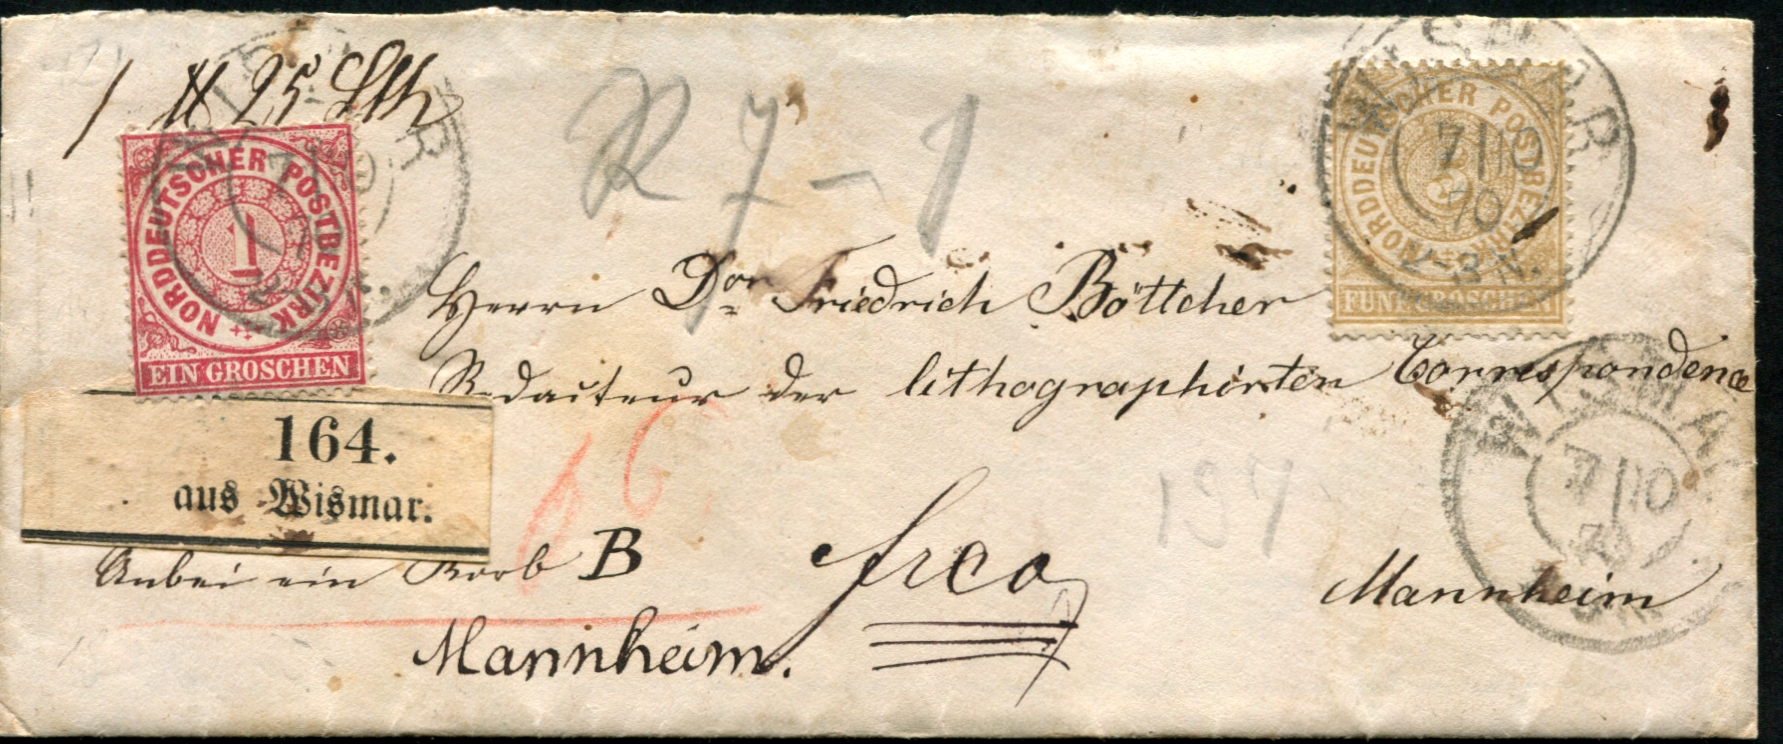 1 ℔ 25 Lth
R 7 - 1
NORDDEUTSCHER POSTBEZIRK
1
EIN GROSCHEN
WISMAR
NORDDEUTSCHER POSTBEZIRK
5
FÜNF GROSCHEN
WISMAR
7|10
70
2-3 N.
Herrn Dor Friedrich Böttcher
Redacteur der lithographirten Correspondence
164.
aus Wismar.
WISMAR
7|10
70
197
Anbei ein Korb B
frco
Mannheim
Mannheim.